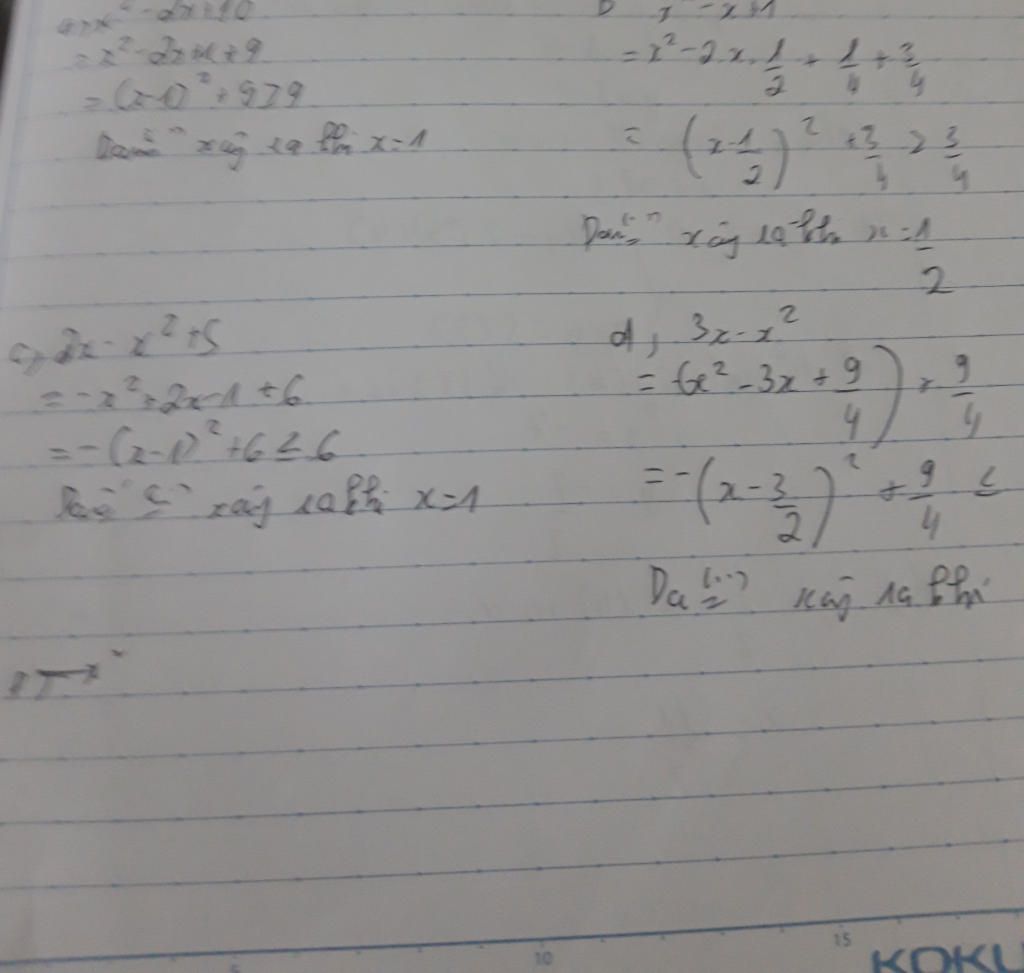 a, x² - 2x + 10
= x² - 2x + 1 + 9
= (x-1)² + 9 ≥ 9
Dấu "=" xảy ra khi x = 1
b x² - x + 1
= x² - 2.x.1/2 + 1/4 + 3/4
= (x - 1/2)² + 3/4 ≥ 3/4
Dấu "=" xảy ra khi x = 1/2
c, 2x - x² + 5
= -x² + 2x - 1 + 6
= -(x-1)² + 6 ≤ 6
Dấu "=" xảy ra khi x = 1
d, 3x - x²
= (x² - 3x + 9/4) + 9/4
= -(x - 3/2)² + 9/4 ≤
Dấu "=" xảy ra khi
5
10
15
KOKU